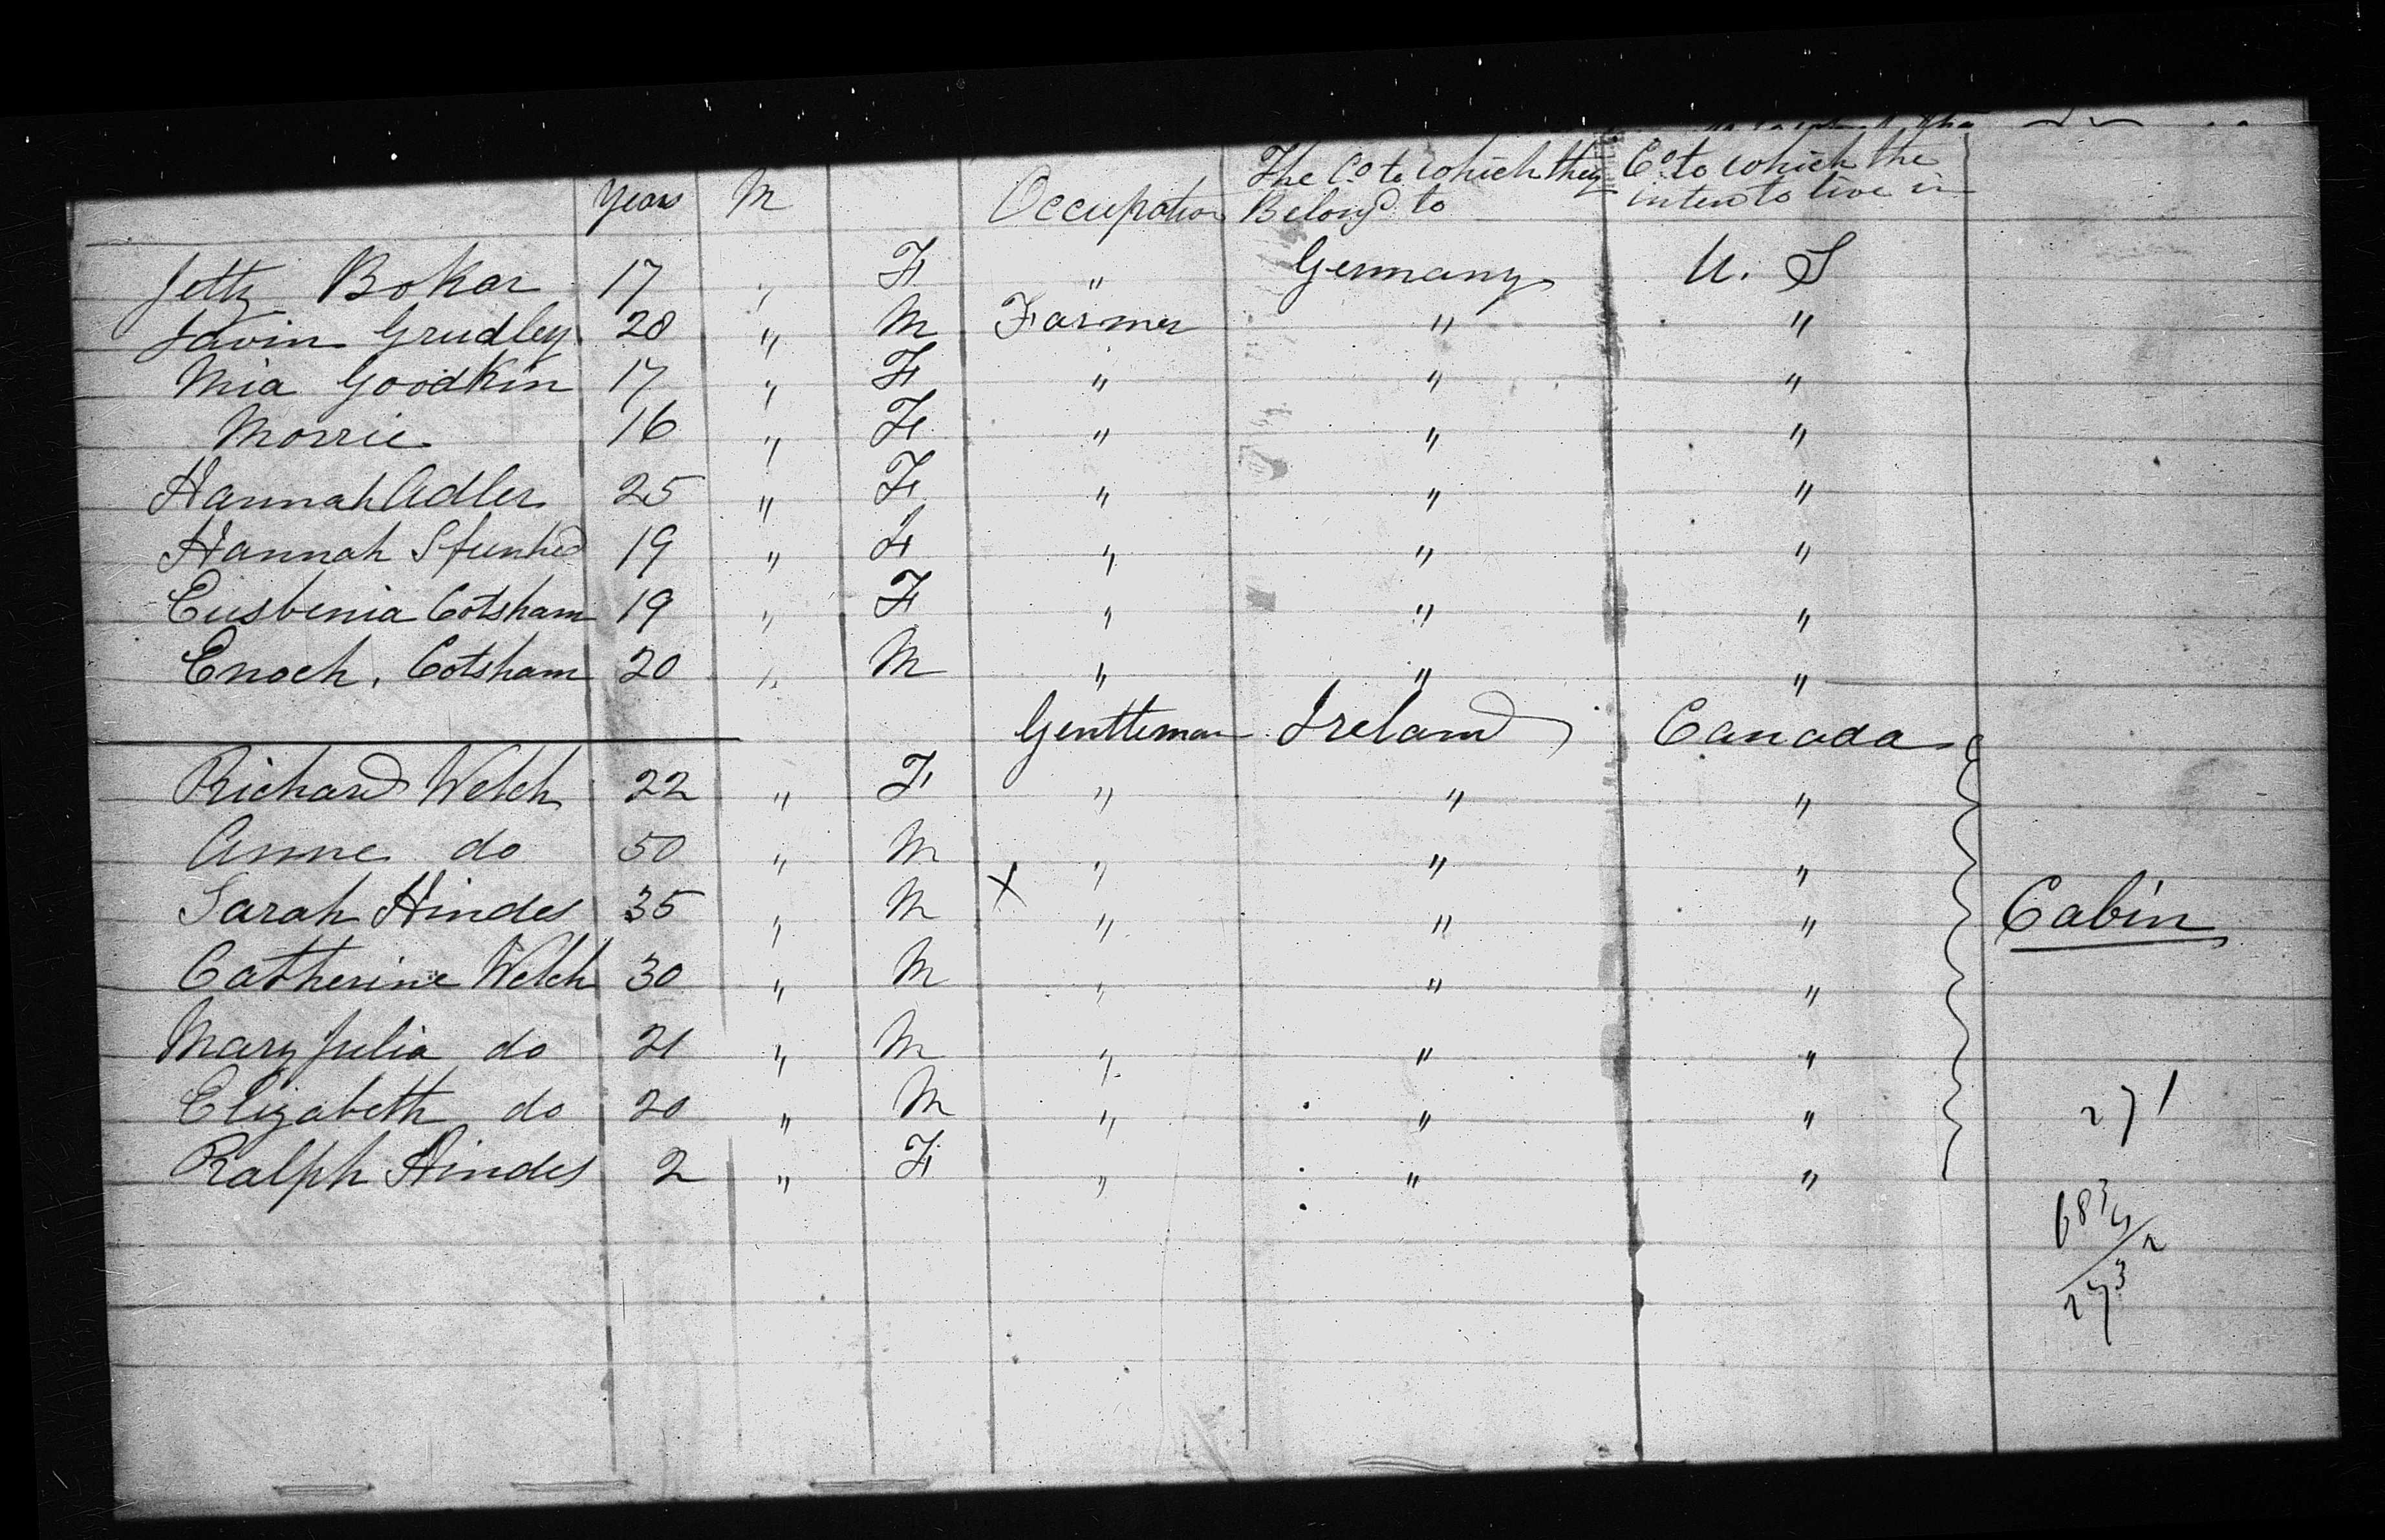 Years M Occupation The Co to which they Belong to Co to which the inten to live in
Jetty Bokar 17 " F " Germany U. S
Gavin Grudley 28 " M Farmer " "
Mia Goodkin 17 " F " " "
Morrie 16 " F " " "
Hannah Adler 25 " F " " "
Hannah 19 " F " " "
Eusbenia Cotsham 19 " F " " "
Enoch. Cotsham 20 " M " " "
Gentleman Ireland Canada
Richard Welch 22 " F " " "
Anne do 50 " M " " "
Sarah Hindes 35 " M X " " " Cabin
Catherine Welch 30 " M " " "
Mary Julia do 21 " M " " "
Elizabeth do 20 " M " " " 271
Ralph Hindes 2 " F " " "
68 3/4
273